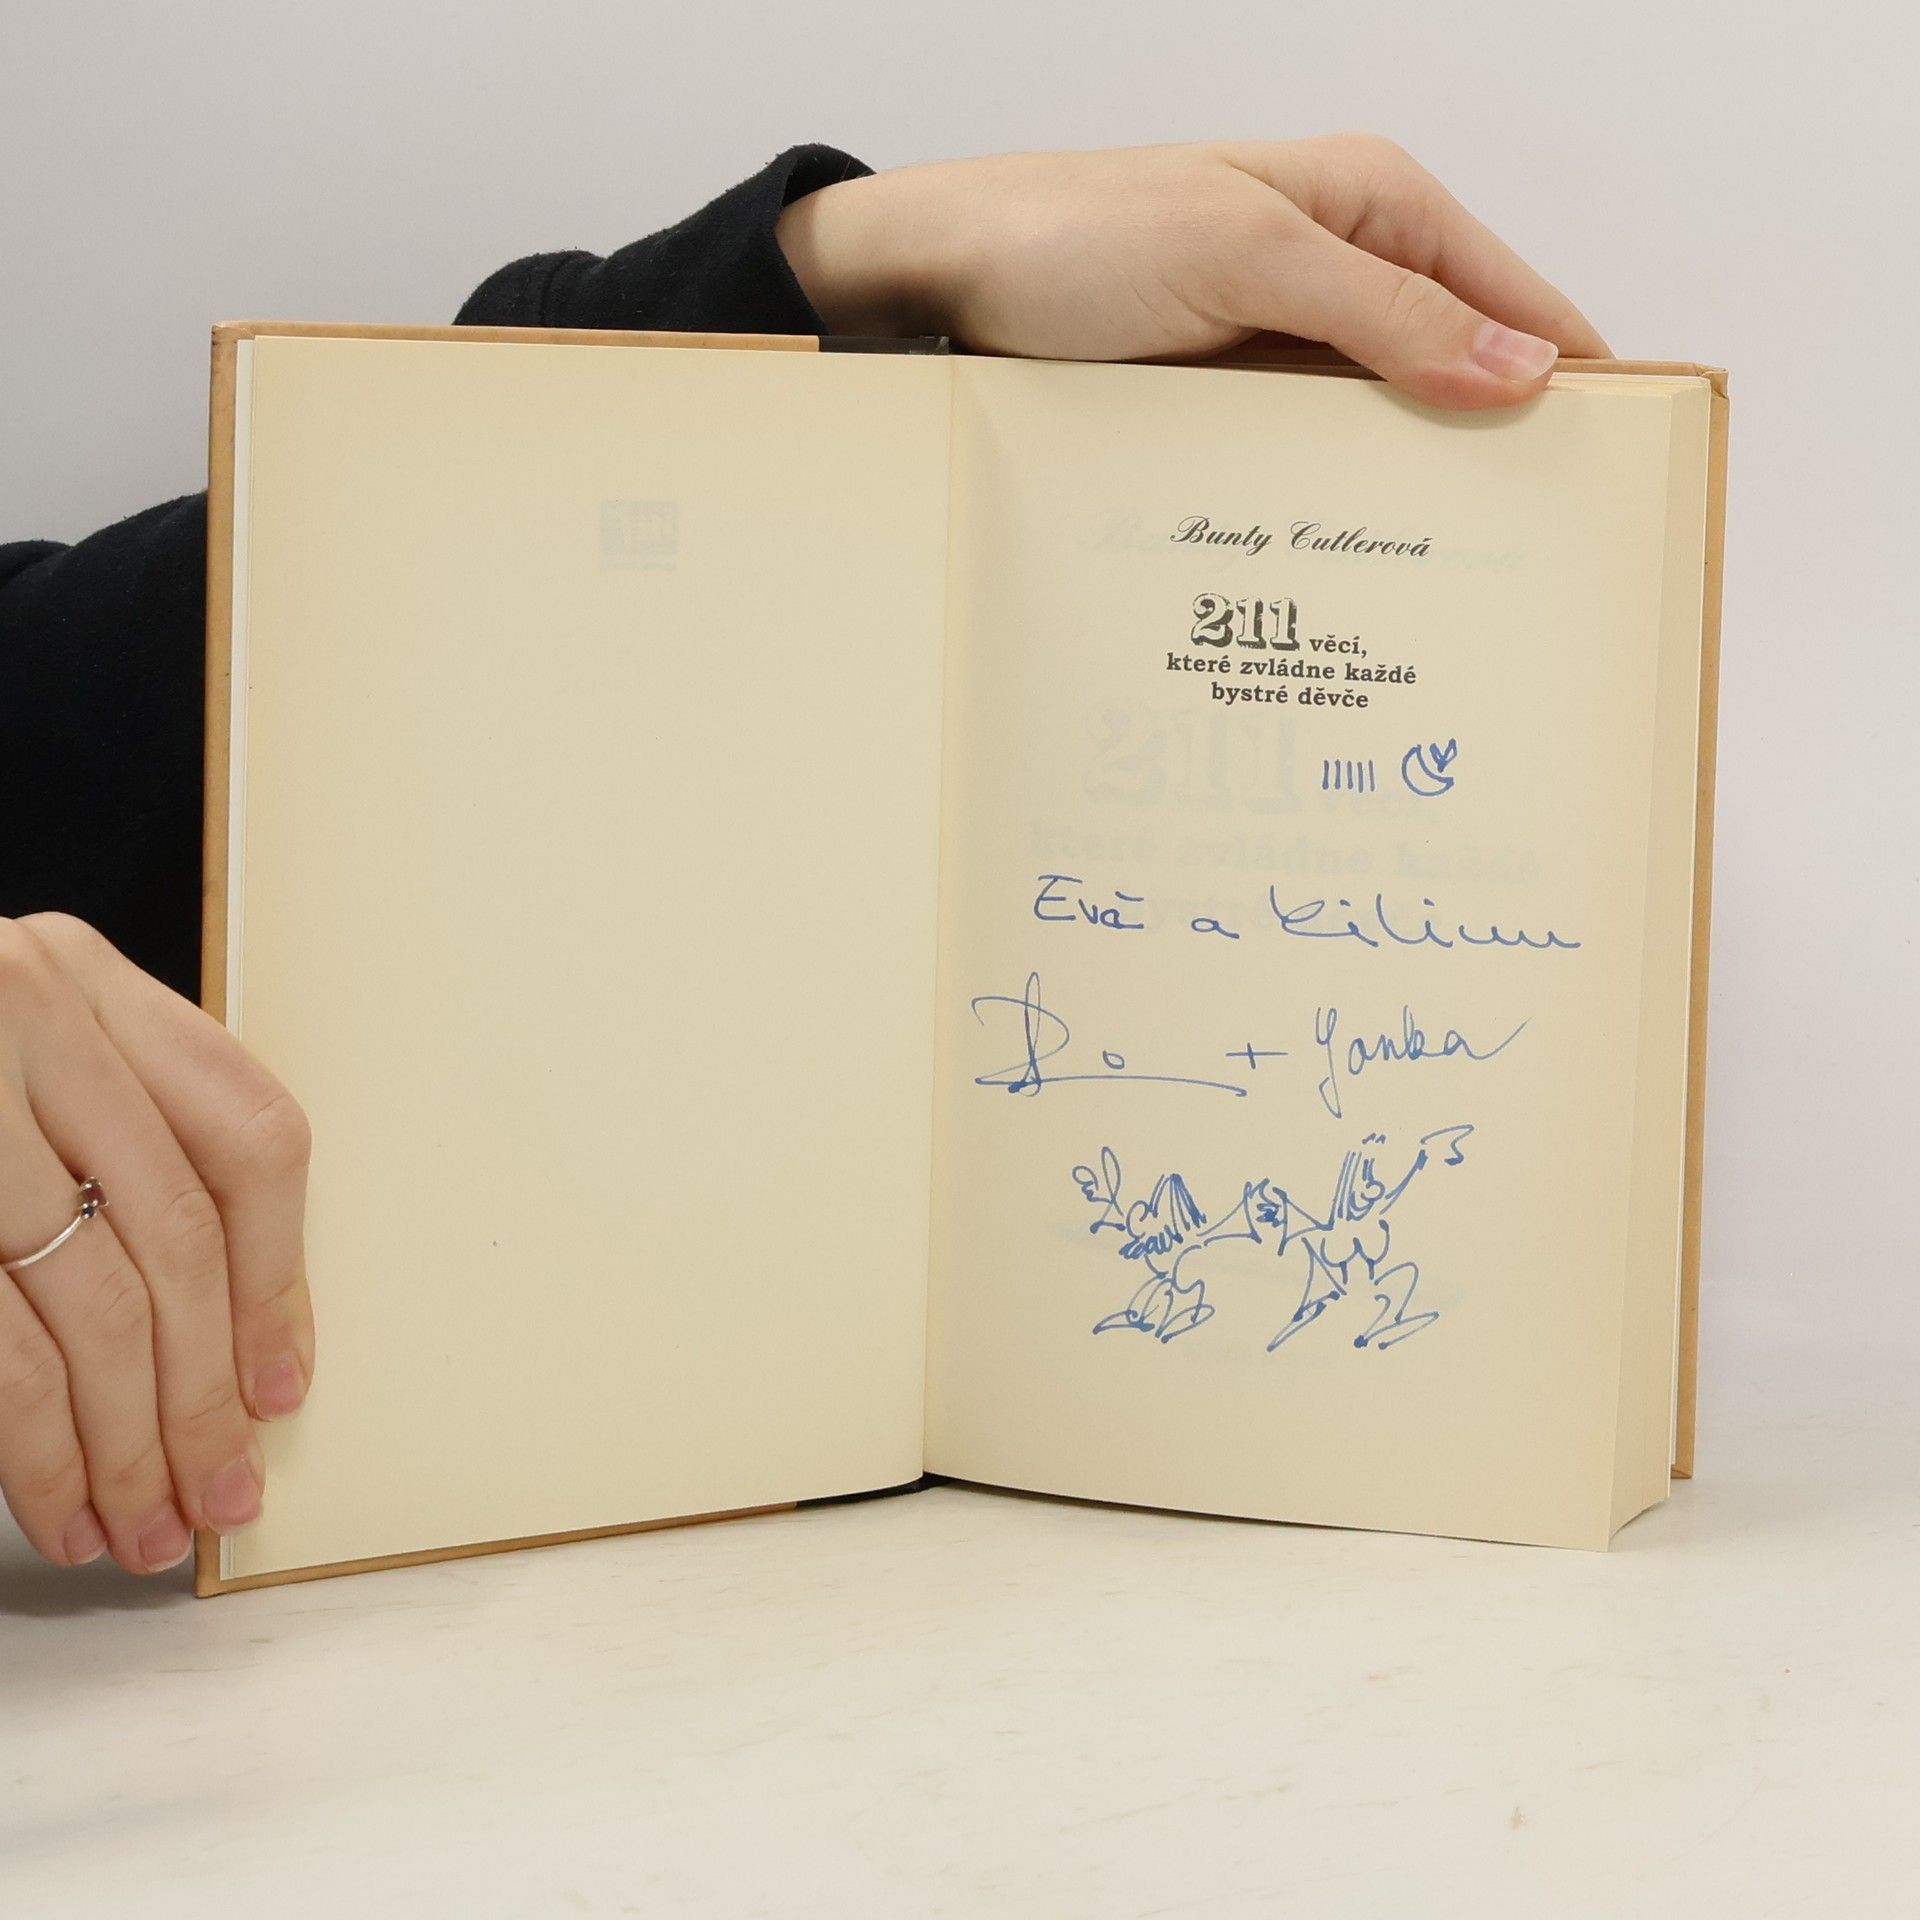 Bunty Cutlerová
211 věcí,
které zvládne každé
bystré děvče
Eva a Kilian
+ Yanka